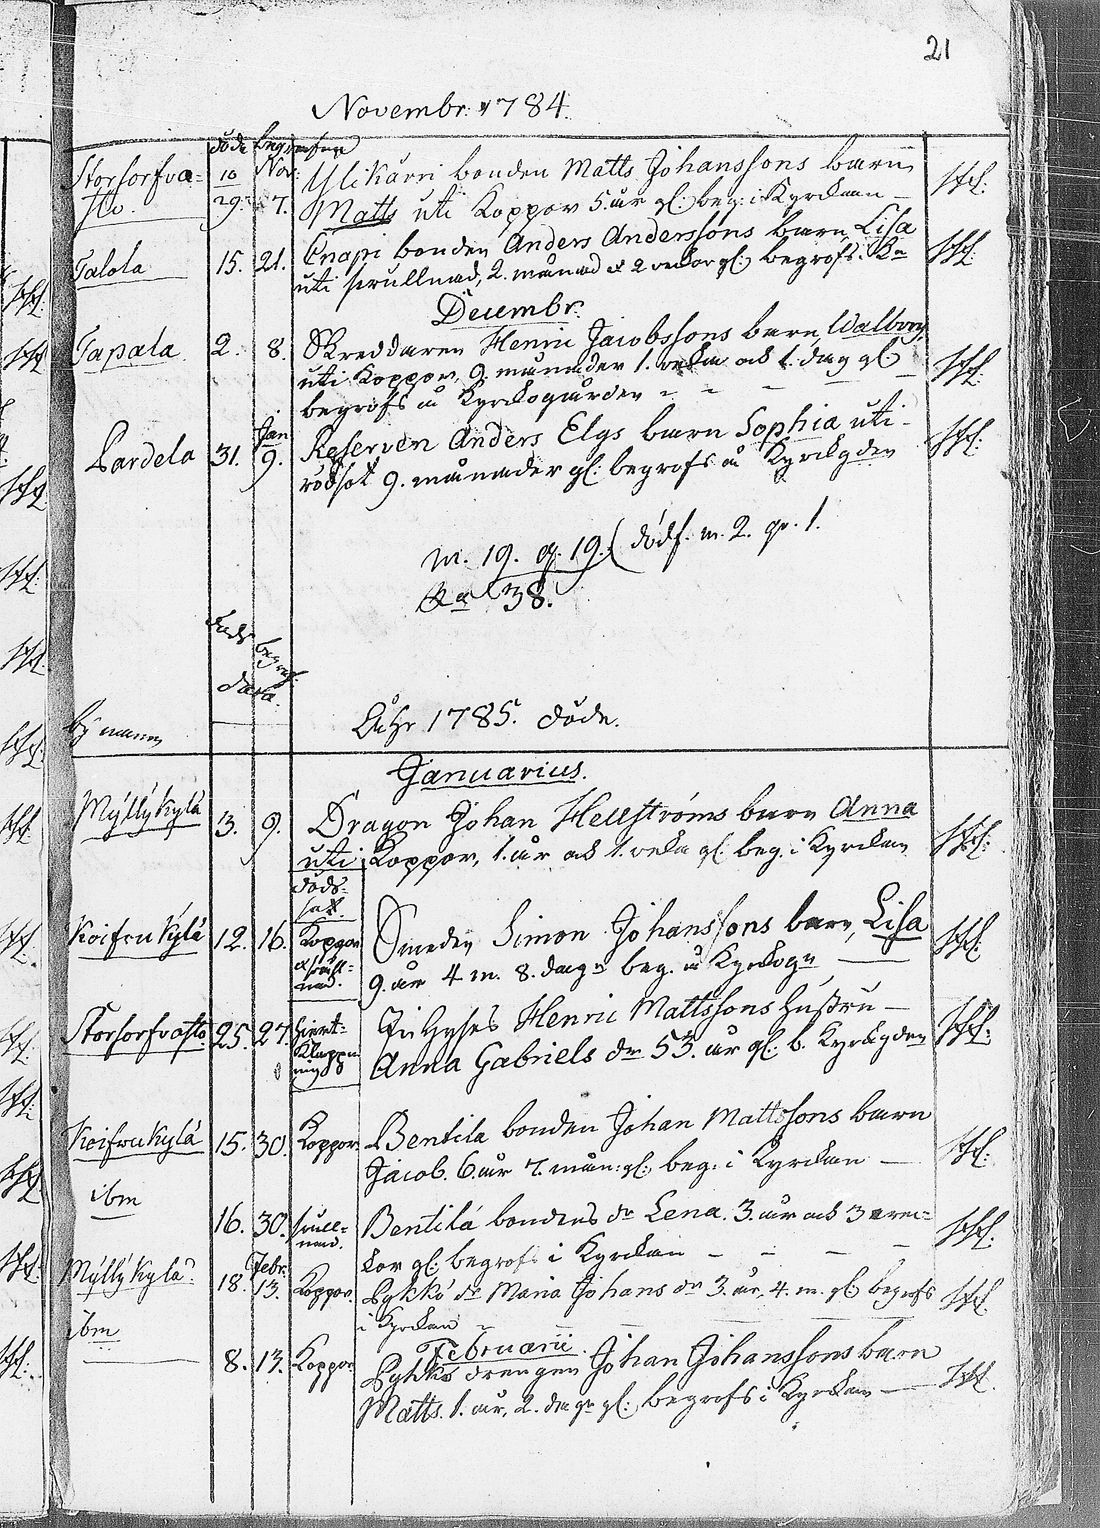 21
Novembr: 1784.
döde begrafne
Storsorfva= 10 Nov: Ylikärri bonden Matts Johanssons barn
sto. 29. 7. Matts uti Koppor 5. år gl: beg: i Kyrckan
Talola 15. 21. Cnapi bonden Anders Anderssons barn Lisa
uti srullnad, 2. månad & 2 veckor gl: begrofs.
Decembr.
Tapala 2. 8. Skreddaren Henric Jacobssons barn, Walborg,
uti Koppor, 9. månader 1. veka och 1. dag gl
begrofs å Kyrckogården
Jan
Pardela 31. 9. Reserven Anders Elgs barn Sophia uti
rödsot 9. månader gl: begrofs å Kyrckgden
m. 19. q. 19. dödf. m. 2. qv. 1.
Sa 38.
Döds begraf.
data.
by namn
Åhr 1785. döde.
Januarius.
Mÿllÿkylä 3. 9. Dragon Johan Hellströms barn Anna
uti Koppor, 1. år och 1. veka gl. beg. i Kyrckan
döds-
sät.
Koifvukylä 12. 16. Koppor Smeden Simon Johanssons barn, Lisa
9. år 4. m. 8. dagr beg. å Kyrckogn
nad.
Storsorfvasto 25. 27 hiert- Inhyses Henric Mattssons hustru
Klappning Anna Gabriels dr 53. år gl: b. Kyrckgden
Koifvukylä 15. 30. Koppor Bentila bonden Johan Mattssons barn
Jacob. 6. år 7. mån: gl: beg. i Kyrckan
ibm
16. 30. srull- Bentilä bondens dr Lena. 3. år och 3 wec-
nad. kor gl: begrofs i Kyrckan
Febr.
Mÿllÿkylä 18. 13. Koppor. Pykkö dr Maria Johans dr 3. år, 4. m. gl: begrofs
i Kyrckan
ibm
Februarii
8. 13. Koppor Pykkö drengen Johan Johanssons barn
Matts. 1. år, 2. dagr gl: begrofs i Kyrckan